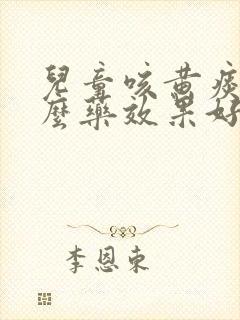 兒童咳黄痰
麼藥效果好
李恩東